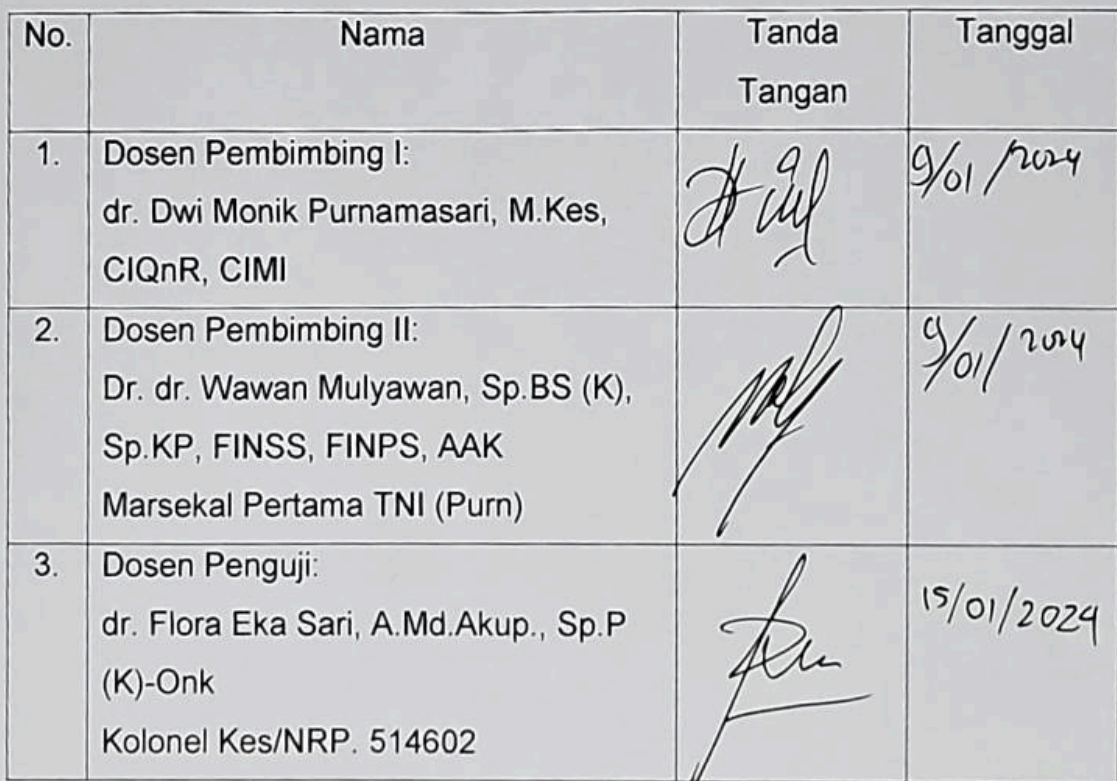 No. Nama Tanda Tangan Tanggal
1. Dosen Pembimbing I: 9/01/2024
dr. Dwi Monik Purnamasari, M.Kes,
CIQnR, CIMI
2. Dosen Pembimbing II: 9/01/2024
Dr. dr. Wawan Mulyawan, Sp.BS (K),
Sp.KP, FINSS, FINPS, AAK
Marsekal Pertama TNI (Purn)
3. Dosen Penguji:
dr. Flora Eka Sari, A.Md.Akup., Sp.P 15/01/2024
(K)-Onk
Kolonel Kes/NRP. 514602